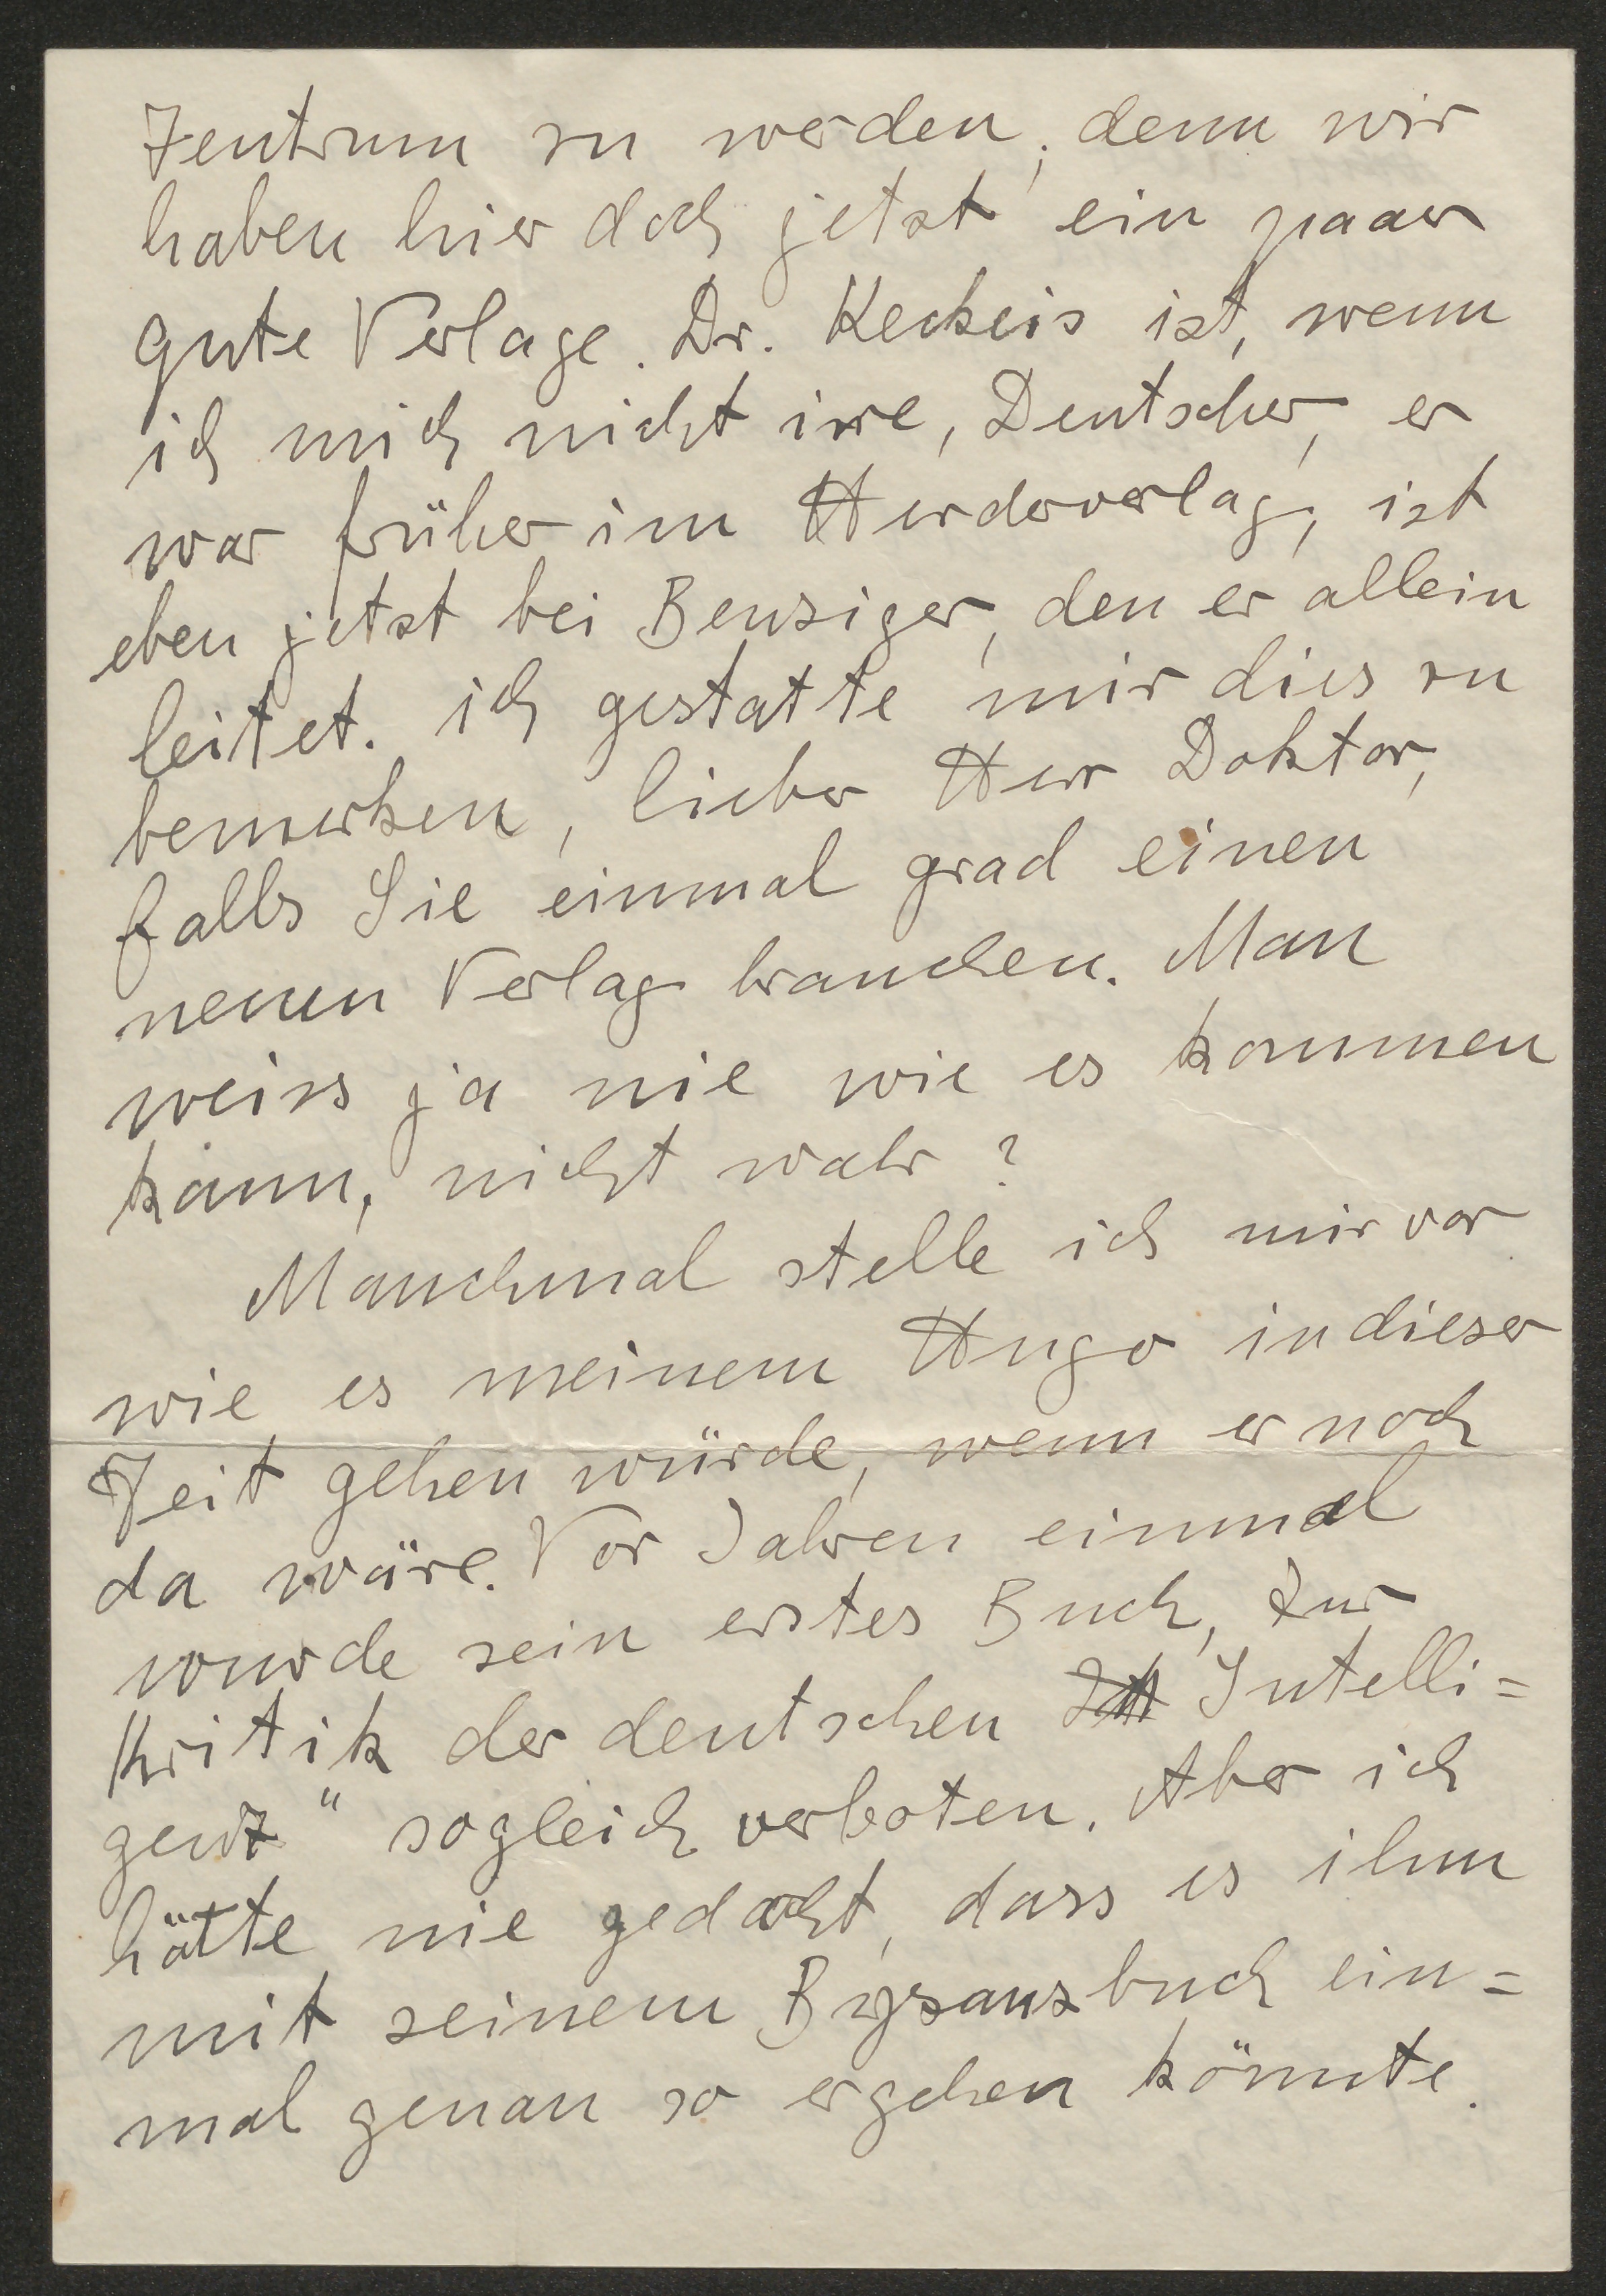 Zentrum zu werden, denn wir
haben hier doch jetzt ein paar
gute Verlage. Dr. Keckeis ist, wenn
ich mich nicht irre, Deutscher, er
war früher im Herderverlag, ist
eben jetzt bei Benziger, den er allein
leitet. ich gestatte mir dies zu
bemerken, lieber Herr Doktor,
falls Sie einmal grad einen
neuen Verlag brauchen. Man
weiss ja nie wie es kommen
kann, nicht wahr?
Manchmal stelle ich mir vor
wie es meinem Hugo in dieser
Zeit gehen würde, wenn er noch
da wäre. Vor Jahren einmal
wurde sein erstes Buch, Zur
Kritik der deutschen Intelli=
genz" sogleich verboten. Aber ich
hätte nie gedacht, dass es ihm
mit seinem Byzanzbuch ein=
mal genau so ergehen könnte.